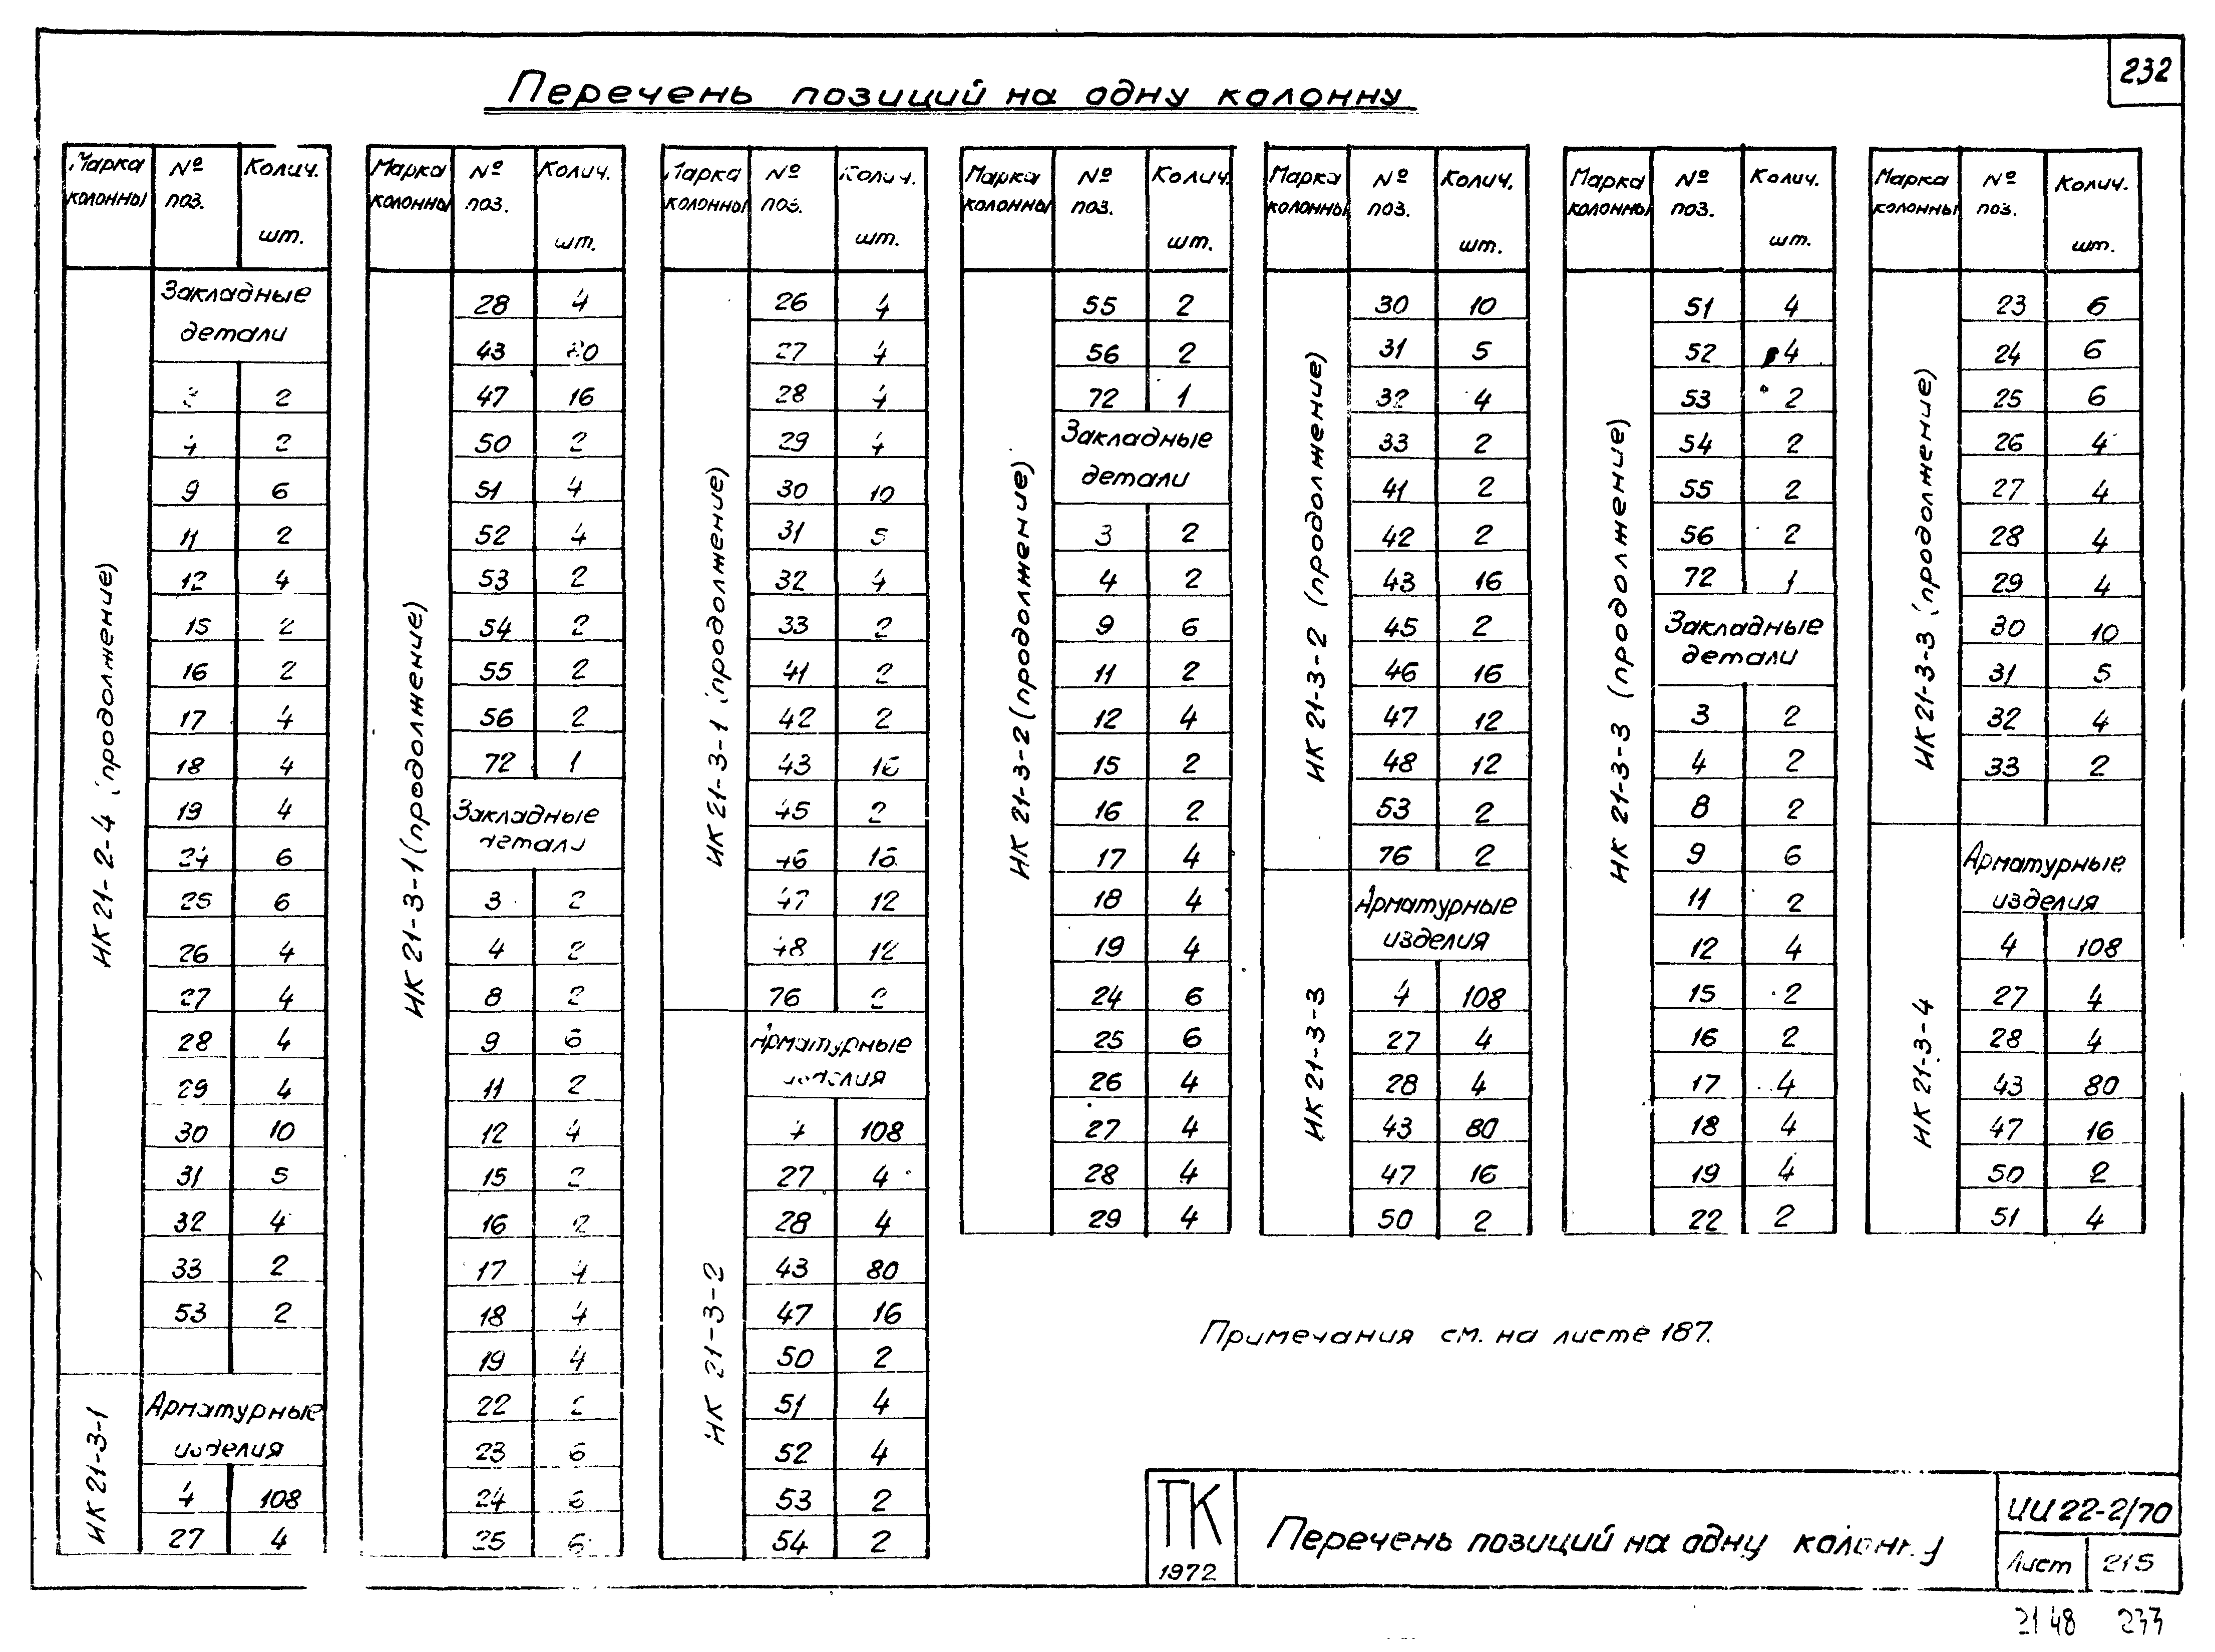 232
Перечень позиций на одну колонну
Марка колонны № поз. Колич. шт.
ИК 21-2-4 (продолжение)
Закладные детали
3 2
4 2
9 6
11 2
12 4
15 2
16 2
17 4
18 4
19 4
24 6
25 6
26 4
27 4
28 4
29 4
30 10
31 5
32 4
33 2
53 2
ИК 21-3-1
Арматурные изделия
4 108
27 4
Марка колонны № поз. Колич. шт.
ИК 21-3-1 (продолжение)
28 4
43 80
47 16
50 2
51 4
52 4
53 2
54 2
55 2
56 2
72 1
Закладные детали
3 2
4 2
8 2
9 6
11 2
12 4
15 2
16 2
17 4
18 4
19 4
22 2
23 6
24 6
25 6
Марка колонны № поз. Колич. шт.
ИК 21-3-1 (продолжение)
26 4
27 4
28 4
29 4
30 10
31 5
32 4
33 2
41 2
42 2
43 16
45 2
46 16
47 12
48 12
76 2
ИК 21-3-2
Арматурные изделия
4 108
27 4
28 4
43 80
47 16
50 2
51 4
52 4
53 2
54 2
Марка колонны № поз. Колич. шт.
ИК 21-3-2 (продолжение)
55 2
56 2
72 1
Закладные детали
3 2
4 2
9 6
11 2
12 4
15 2
16 2
17 4
18 4
19 4
24 6
25 6
26 4
27 4
28 4
29 4
Марка колонны № поз. Колич. шт.
ИК 21-3-2 (продолжение)
30 10
31 5
32 4
33 2
41 2
42 2
43 16
45 2
46 16
47 12
48 12
53 2
76 2
ИК 21-3-3
Арматурные изделия
4 108
27 4
28 4
43 80
47 16
50 2
Марка колонны № поз. Колич. шт.
ИК 21-3-3 (продолжение)
51 4
52 4
53 2
54 2
55 2
56 2
72 1
Закладные детали
3 2
4 2
8 2
9 6
11 2
12 4
15 2
16 2
17 4
18 4
19 4
22 2
Марка колонны № поз. Колич. шт.
ИК 21-3-3 (продолжение)
23 6
24 6
25 6
26 4
27 4
28 4
29 4
30 10
31 5
32 4
33 2
ИК 21-3-4
Арматурные изделия
4 108
27 4
28 4
43 80
47 16
50 2
51 4
Примечания см. на листе 187.
ТК
1972
Перечень позиций на одну колонну
ИИ 22-2/70
Лист 215
2148 233